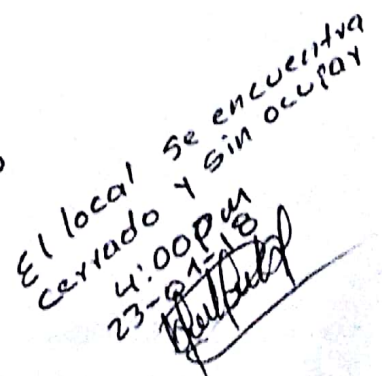 El local se encuentra
cerrado y sin ocupar
4:00pm
23-01-18